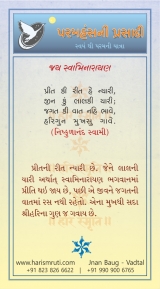 પરમહંસની પ્રસાદી
સ્વયં થી ધામની યાત્રા
જય સ્વામિનારાયણ
પ્રીત કી રીત હે ન્યારી,
જીન કું લાલકી યારી;
જગત કી વાત નહિ ભાવે,
હરિગુન મુખસુ ગાવે.
(નિષ્કુળાનંદ સ્વામી)
પ્રીતની રીત ન્યારી છે. જેને લાલની
યારી અર્થાત્ સ્વામિનારાયણ ભગવાનમાં
પ્રીતિ થઈ જાય છે, પછી એ જીવને જગતની
વાતમાં રસ નથી રહેતો. એના મુખથી સદા
શ્રીહરિના ગુણ જ ગવાય છે.
www.harismruti.com
Jnan Baug - Vadtal
+91 823 826 6622 | +91 990 900 6765